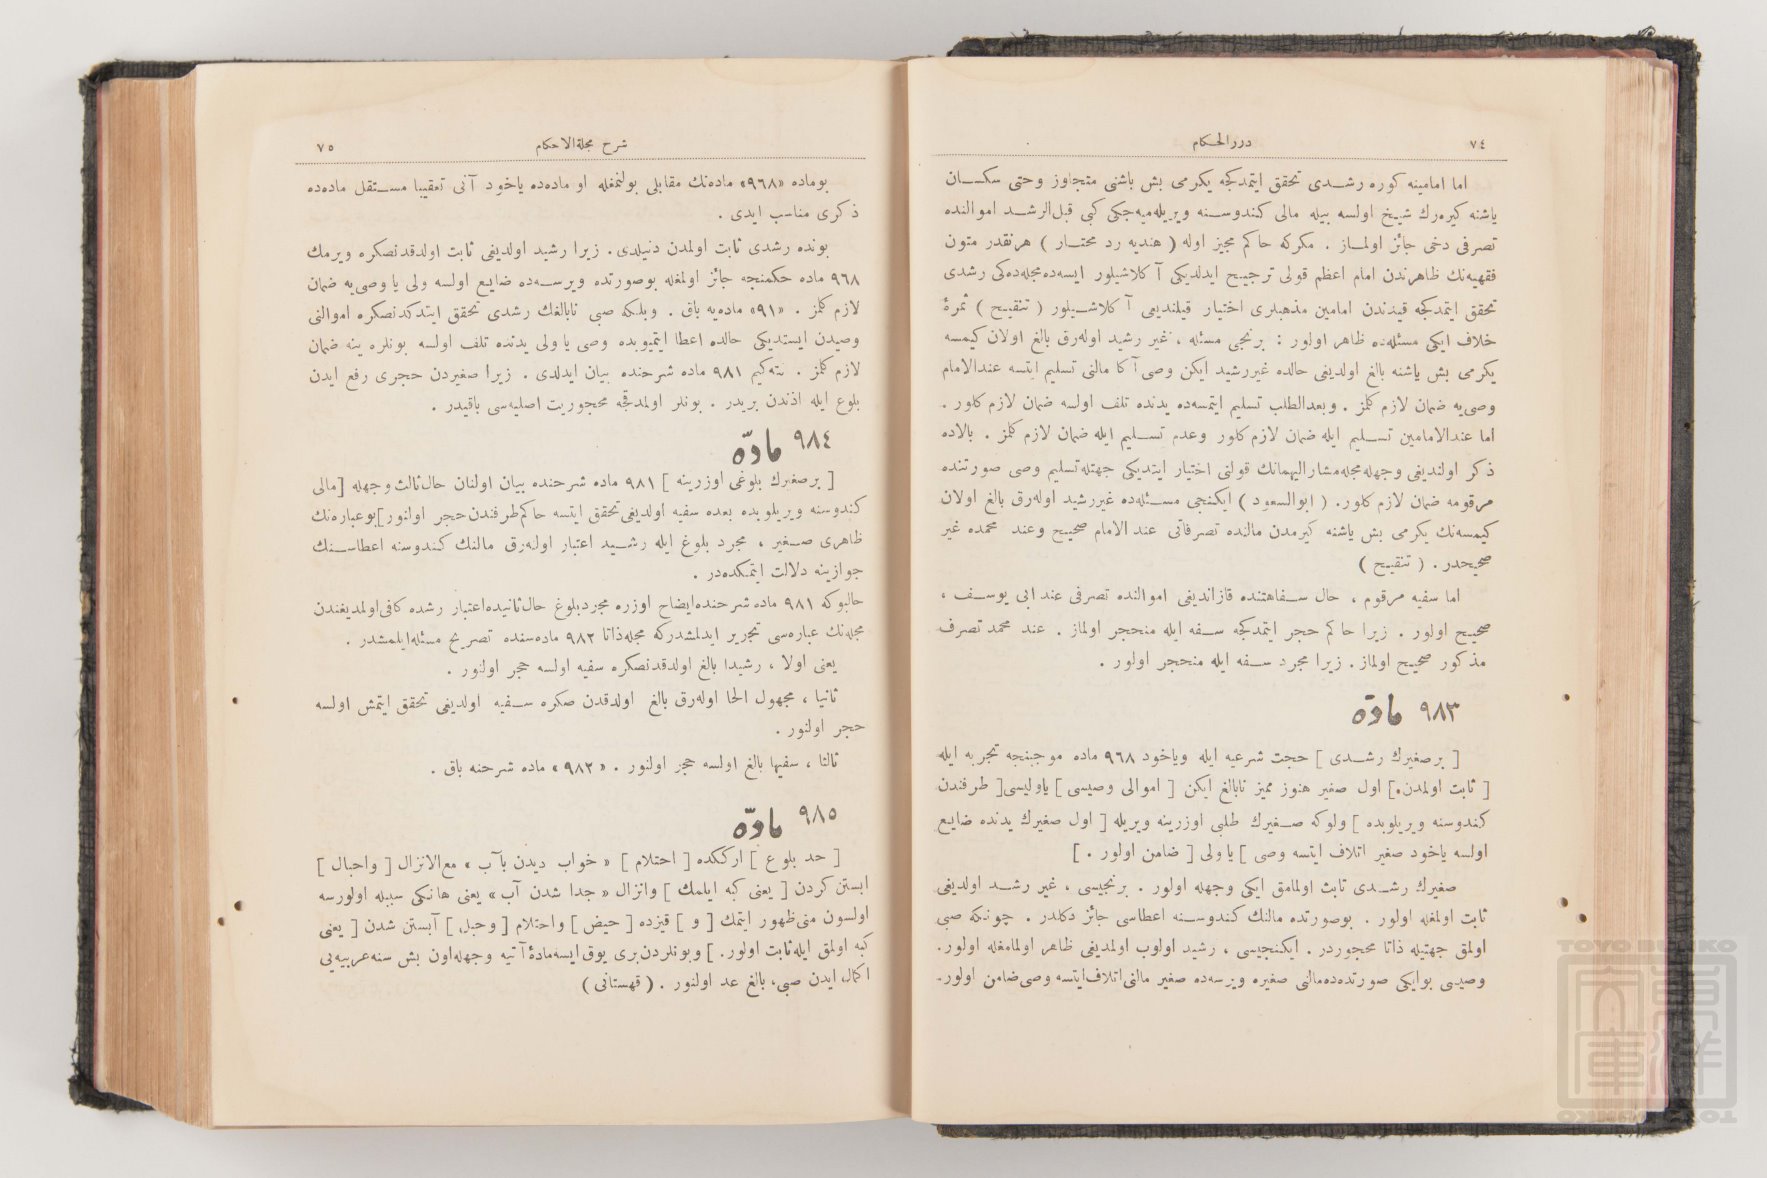 ٧٤
دررالحكام
اما امامينه كوره رشدى تحقق ايتمدكجه يكرمى بش ياشنى متجاوز وحتى سكسان
ياشنه كيره‌رك شيخ اولسه بيله مالى كندوسنه ويريله‌ميه‌جكى كبى قبل‌الرشد اموالنده
تصرفى دخى جائز اولماز . مكركه حاكم مجيز اوله ( هنديه رد محتار ) هرنقدر متون
فقهيه‌نك ظاهرندن امام اعظم قولى ترجيح ايدلديكى آكلاشيلور ايسه‌ده مجله‌ده‌كى رشدى
تحقق ايتمدكجه قيدندن امامين مذهبلرى اختيار قيلنديغى آكلاشيلور ( تنقيح ) ثمرۀ
خلاف ايكى مسئله‌ده ظاهر اولور : برنجى مسئله ، غير رشيد اوله‌رق بالغ اولان كيمسه
يكرمى بش ياشنه بالغ اولديغى حالده غيررشيد ايكن وصى آكا مالنى تسليم ايتسه عندالامام
وصى‌يه ضمان لازم كلمز . وبعدالطلب تسليم ايتمسه‌ده يدنده تلف اولسه ضمان لازم كلور .
اما عندالامامين تسليم ايله ضمان لازم كلور وعدم تسليم ايله ضمان لازم كلمز . بالاده
ذكر اولنديغى وجهله مجله مشاراليهمانك قولنى اختيار ايتديكى جهتله تسليم وصى صورتنده
مرقومه ضمان لازم كلور. ( ابوالسعود ) ايكنجى مسئله‌ده غيررشيد اوله‌رق بالغ اولان
كيمسه‌نك يكرمى بش ياشنه كيرمدن مالنده تصرفاتى عند الامام صحيح وعند محمده غير
صحيحدر . ( تنقيح )
اما سفيه مرقوم ، حال سفاهتنده قازانديغى اموالنده تصرفى عند ابى يوسف ،
صحيح اولور . زيرا حاكم حجر ايتمدكجه سفه ايله منحجر اولماز . عند محمد تصرف
مذكور صحيح اولماز. زيرا مجرد سفه ايله منحجر اولور .
٩٨٣ مادّه
[ برصغيرك رشدى ] حجت شرعيه ايله وياخود ٩٦٨ ماده موجبنجه تجربه ايله
[ ثابت اولمدن ] اول صغير هنوز مميز نابالغ ايكن [ اموالى وصيسى ] ياوليسى [ طرفندن
كندوسنه ويريلوبده ] ولوكه صغيرك طلبى اوزرينه ويريله [ اول صغيرك يدنده ضايع
اولسه ياخود صغير اتلاف ايتسه وصى ] ياولى [ ضامن اولور . ]
صغيرك رشدى ثابت اولمامق ايكى وجهله اولور . برنجيسى ، غير رشد اولديغى
ثابت اولمغله اولور . بوصورتده مالنك كندوسنه اعطاسى جائز دكلدر . چونكه صبى
اولمق جهتيله ذاتا محجوردر . ايكنجيسى ، رشيد اولوب اولمديغى ظاهر اولمامغله اولور.
وصيسى بوايكى صورتده‌ده مالنى صغيره ويرسه‌ده صغير مالنى اتلاف‌ايتسه وصى ضامن اولور.
شرح مجلةالاحكام
٧٥
بوماده «٩٦٨» ماده‌نك مقابلى بولنمغله او ماده‌ده ياخود آنى تعقيبا مستقل ماده‌ده
ذكرى مناسب ايدى .
بونده رشدى ثابت اولمدن دنيلدى. زيرا رشيد اولديغى ثابت اولدقدنصكره ويرمك
٩٦٨ ماده حكمنجه جائز اولمغله بوصورتده ويرسه‌ده ضايع اولسه ولى يا وصى‌يه ضمان
لازم كلمز . «٩١» ماده‌يه باق . وبلكه صبى نابالغك رشدى تحقق ايتدكدنصكره اموالنى
وصيدن ايستديكى حالده اعطا ايتميوبده وصى يا ولى يدنده تلف اولسه بونلره ينه ضمان
لازم كلمز . نته‌كيم ٩٨١ ماده شرحنده بيان ايدلدى . زيرا صغيردن حجرى رفع ايدن
بلوغ ايله اذندن بريدر . بونلر اولمدقجه محجوريت اصليه‌سى باقيدر .
٩٨٤ مادّه
[ برصغيرك بلوغى اوزرينه ] ٩٨١ ماده شرحنده بيان اولنان حال ثالث وجهله [مالى
كندوسنه ويريلوبده بعده سفيه اولديغى تحقق ايتسه حاكم طرفندن حجر اولنور] بوعباره‌نك
ظاهرى صغير ، مجرد بلوغ ايله رشيد اعتبار اوله‌رق مالنك كندوسنه اعطاسنك
جوازينه دلالت ايتمكده‌در .
حالبوكه ٩٨١ ماده شرحنده ايضاح اوزره مجردبلوغ حال ثانيده اعتبار رشده كافى اولمديغندن
مجله‌نك عباره‌سى تجرير ايدلمشدركه مجله ذاتا ٩٨٢ ماده‌سنده تصريح مسئله ايلمشدر .
يعنى اولا ، رشيدا بالغ اولدقدنصكره سفيه اولسه حجر اولنور .
ثانيا ، مجهول الحا اوله‌رق بالغ اولدقدن صكره سفيه اولديغى تحقق ايتمش اولسه
حجر اولنور .
ثالثا ، سفيها بالغ اولسه حجر اولنور . « ٩٨٢ » ماده شرحنه باق .
٩٨٥ مادّه
[ حد بلوغ ] ارككده [ احتلام ] « خواب ديدن باآب » مع‌الانزال [ واحبال ]
ابستن كردن [ يعنى كبه ايلمك ] وانزال « جدا شدن آب » يعنى هانكى سببله اولورسه
اولسون منى ظهور ايتمك [ و ] قيزده [ حيض ] واحتلام [ وحبل ] آبستن شدن [ يعنى
كبه اولمق ايله ثابت اولور. ] وبونلردن برى يوق ايسه مادۀ آتيه وجهله اون بش سنه عربيه‌يى
اكمال ايدن صبى، بالغ عد اولنور . ( قهستانى )
TOYO BUNKO